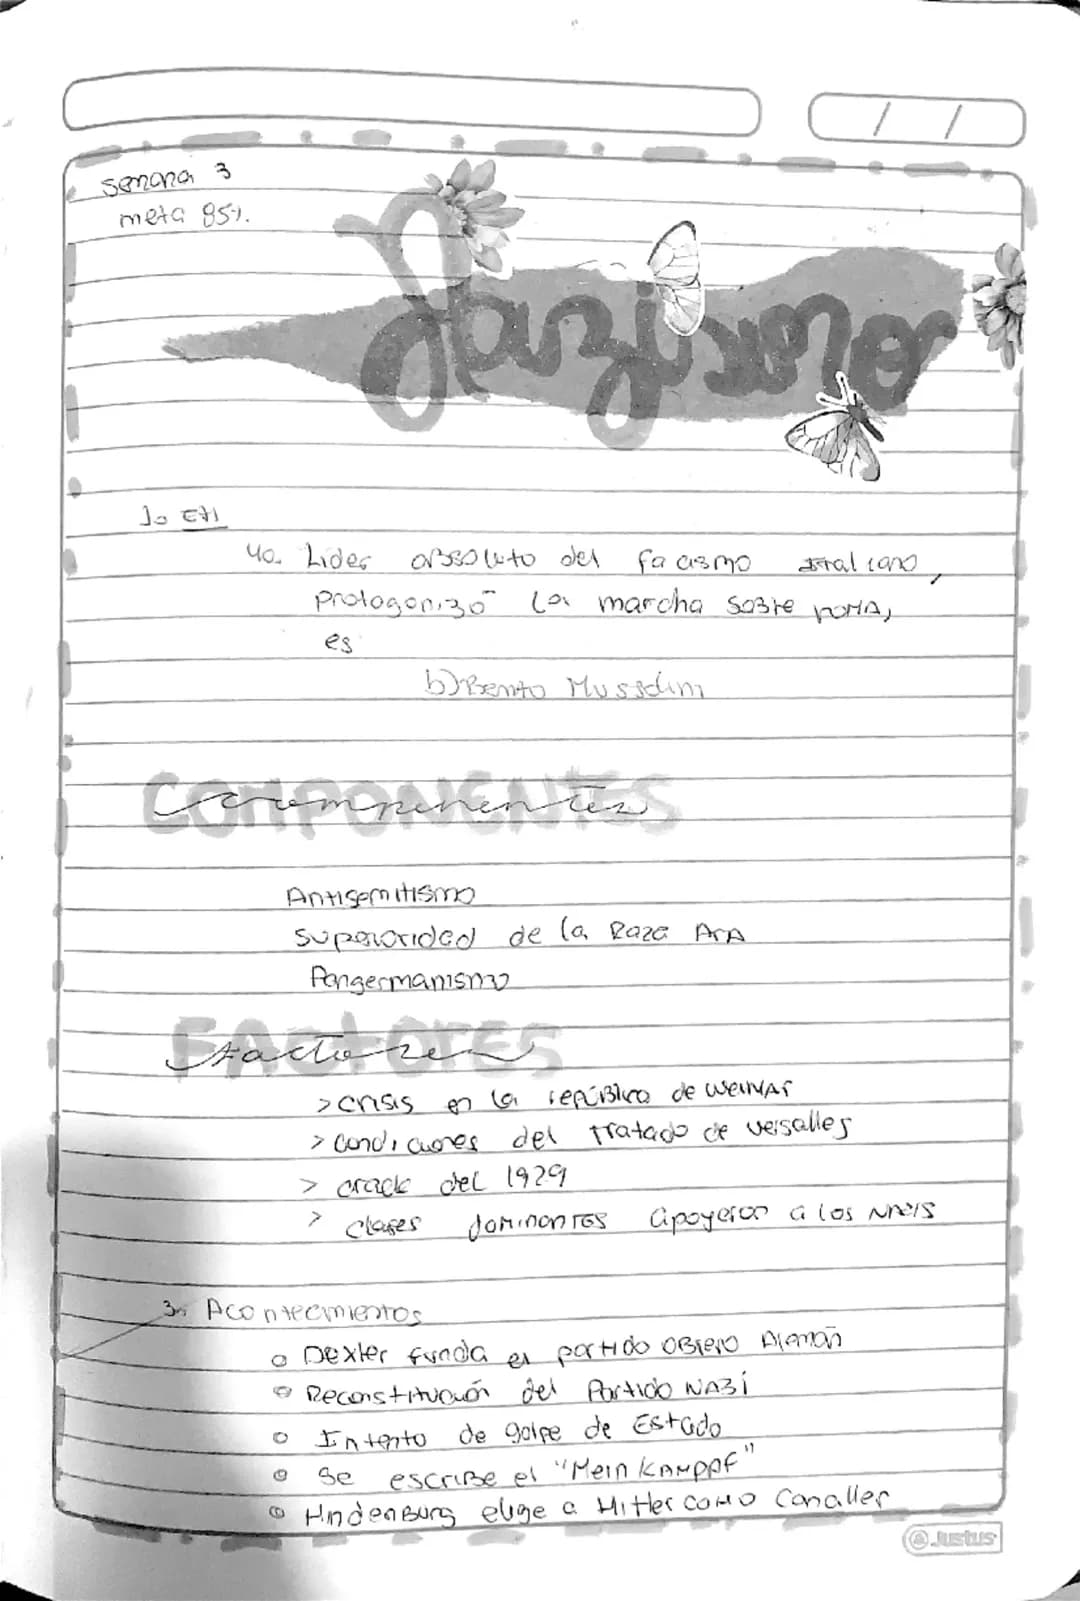 / /
semana 3
meta 85%.
Nazismo
1. EXI
40. Lider absoluto del facismo Italiano,
protagonizó la marcha sobre ROMA,
es
b) Benito Mussolini
COMPONENTES
Componentes
Antisemitismo
Superioridad de la Raza ArA
Pangermanismo
FActores
Factores
> crisis en la república de weimar
> condiciones del tratado de versalles
> crack del 1929
> clases dominantes apoyaron a los NAZIS
3. Acontecimientos
Dexler funda el partido obrero Alemán
Reconstitución del Partido NAZI
Intento de golpe de Estado
Se escribe el "Mein KAMPPF"
Hindenburg elige a Hitler como Canaller
Justus